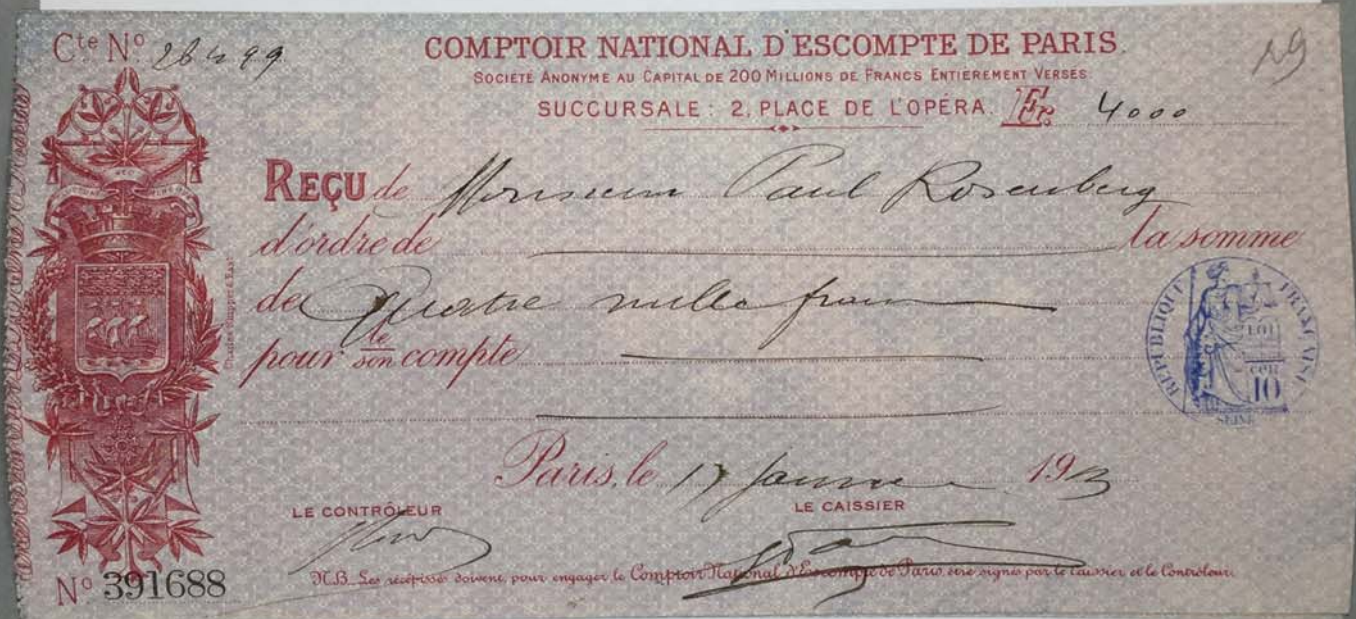 Cte No 28499
COMPTOIR NATIONAL D'ESCOMPTE DE PARIS.
19
SOCIÉTÉ ANONYME AU CAPITAL DE 200 MILLIONS DE FRANCS ENTIÈREMENT VERSÉS.
SUCCURSALE : 2, PLACE DE L'OPÉRA. Fr. 4000
REÇU de Monsieur Paul Rosenberg
d'ordre de la somme
de Quatre mille francs
pour le/son compte
RÉPUBLIQUE FRANÇAISE
LOI
10
SEINE
Paris, le 17 janvier 1913
LE CONTRÔLEUR LE CAISSIER
No 391688
N.B. Les récépissés doivent, pour engager le Comptoir National d'Escompte de Paris, être signés par le Caissier et le Contrôleur.